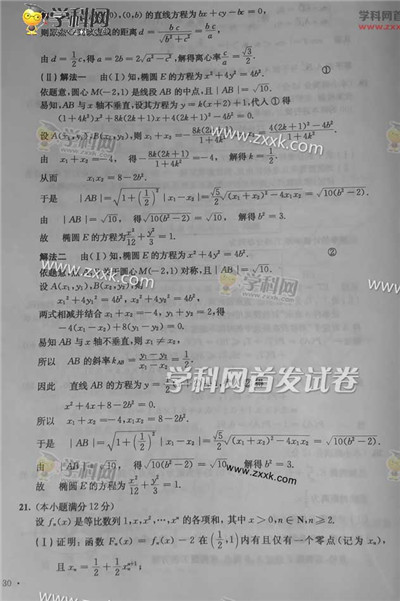 学科网
学科网首
www.zxxk
0),(0,b)的直线方程为bx+cy-bc=0,
的距离d=bc/√(b²+c²)=bc/a,
由d=1/2c,得a=2b=2√(a²-c²),解得离心率c/a=√3/2.
学科网
(Ⅱ)解法一 由(Ⅰ)知,椭圆E的方程为x²+4y²=4b². ①
依题意,圆心M(-2,1)是线段AB的中点,且|AB|=√10.
易知,AB与x轴不垂直,设其方程为y=k(x+2)+1,代入①得
(1+4k²)x²+8k(2k+1)x+4(2k+1)²-4b²=0.
www.zxxk.com
设A(x₁,y₁),B(x₂,y₂),则x₁+x₂=-8k(2k+1)/(1+4k²), 4(2k+1)²-4b²/(1+4k²).
由x₁+x₂=-4, 得-8k(2k+1)/(1+4k²)=-4, 解得k=1/2.
从而 x₁x₂=8-2b².
于是 |AB|=√(1+(1/2)²)|x₁-x₂|=√5/2√((x₁+x₂)²-4x₁x₂)=√(10(b²-2)).
学科网
www.zxxk.com
由 |AB|=√10, 得√(10(b²-2))=√10, 解得b²=3.
故 椭圆E的方程为x²/12+y²/3=1.
解法二 由(Ⅰ)知,椭圆E的方程为x²+4y²=4b². ②
学科网
www.zxxk.com
依题意,点 圆心M(-2,1)对称,且|AB|=√10.
设A(x₁,y₁),B(x₂,y₂),则
x₁²+4y₁²=4b², x₂²+4y₂²=4b²,
两式相减并结合 x₁+x₂=-4, y₁+y₂=2,得
-4(x₁-x₂)+8(y₁-y₂)=0.
易知AB与x轴不垂直,则x₁≠x₂,
所以 AB的斜率k_AB=(y₁-y₂)/(x₁-x₂)=1/2.
因此 直线AB的方程为y=1/2
学科网首发试卷
x²+4x+8-2b²=0.
所以 x₁+x₂=-4, x₁x₂=8-2b².
于是 |AB|=√(1+(1/2)²)|x₁-x₂|=√5/2√((x₁+x₂)²-4x₁x₂)=√(10(b²-2)).
由 |AB|=√10, 得√(10(b²-2))=√10, 解得b²=3.
学科网
www.zxxk.com
故 椭圆E的方程为x²/12+y²/3=1.
21.(本小题满分12分)
设fₙ(x)是等比数列1,x,x²,…,xⁿ的各项和,其中x>0,n∈N,n≥2.
(Ⅰ)证明:函数Fₙ(x)=fₙ(x)-2在(1/2,1)内有且仅有一个零点(记为xₙ),
且xₙ=1/2+1/2xₙⁿ⁺¹;
学科网
www.zxxk.com
30·